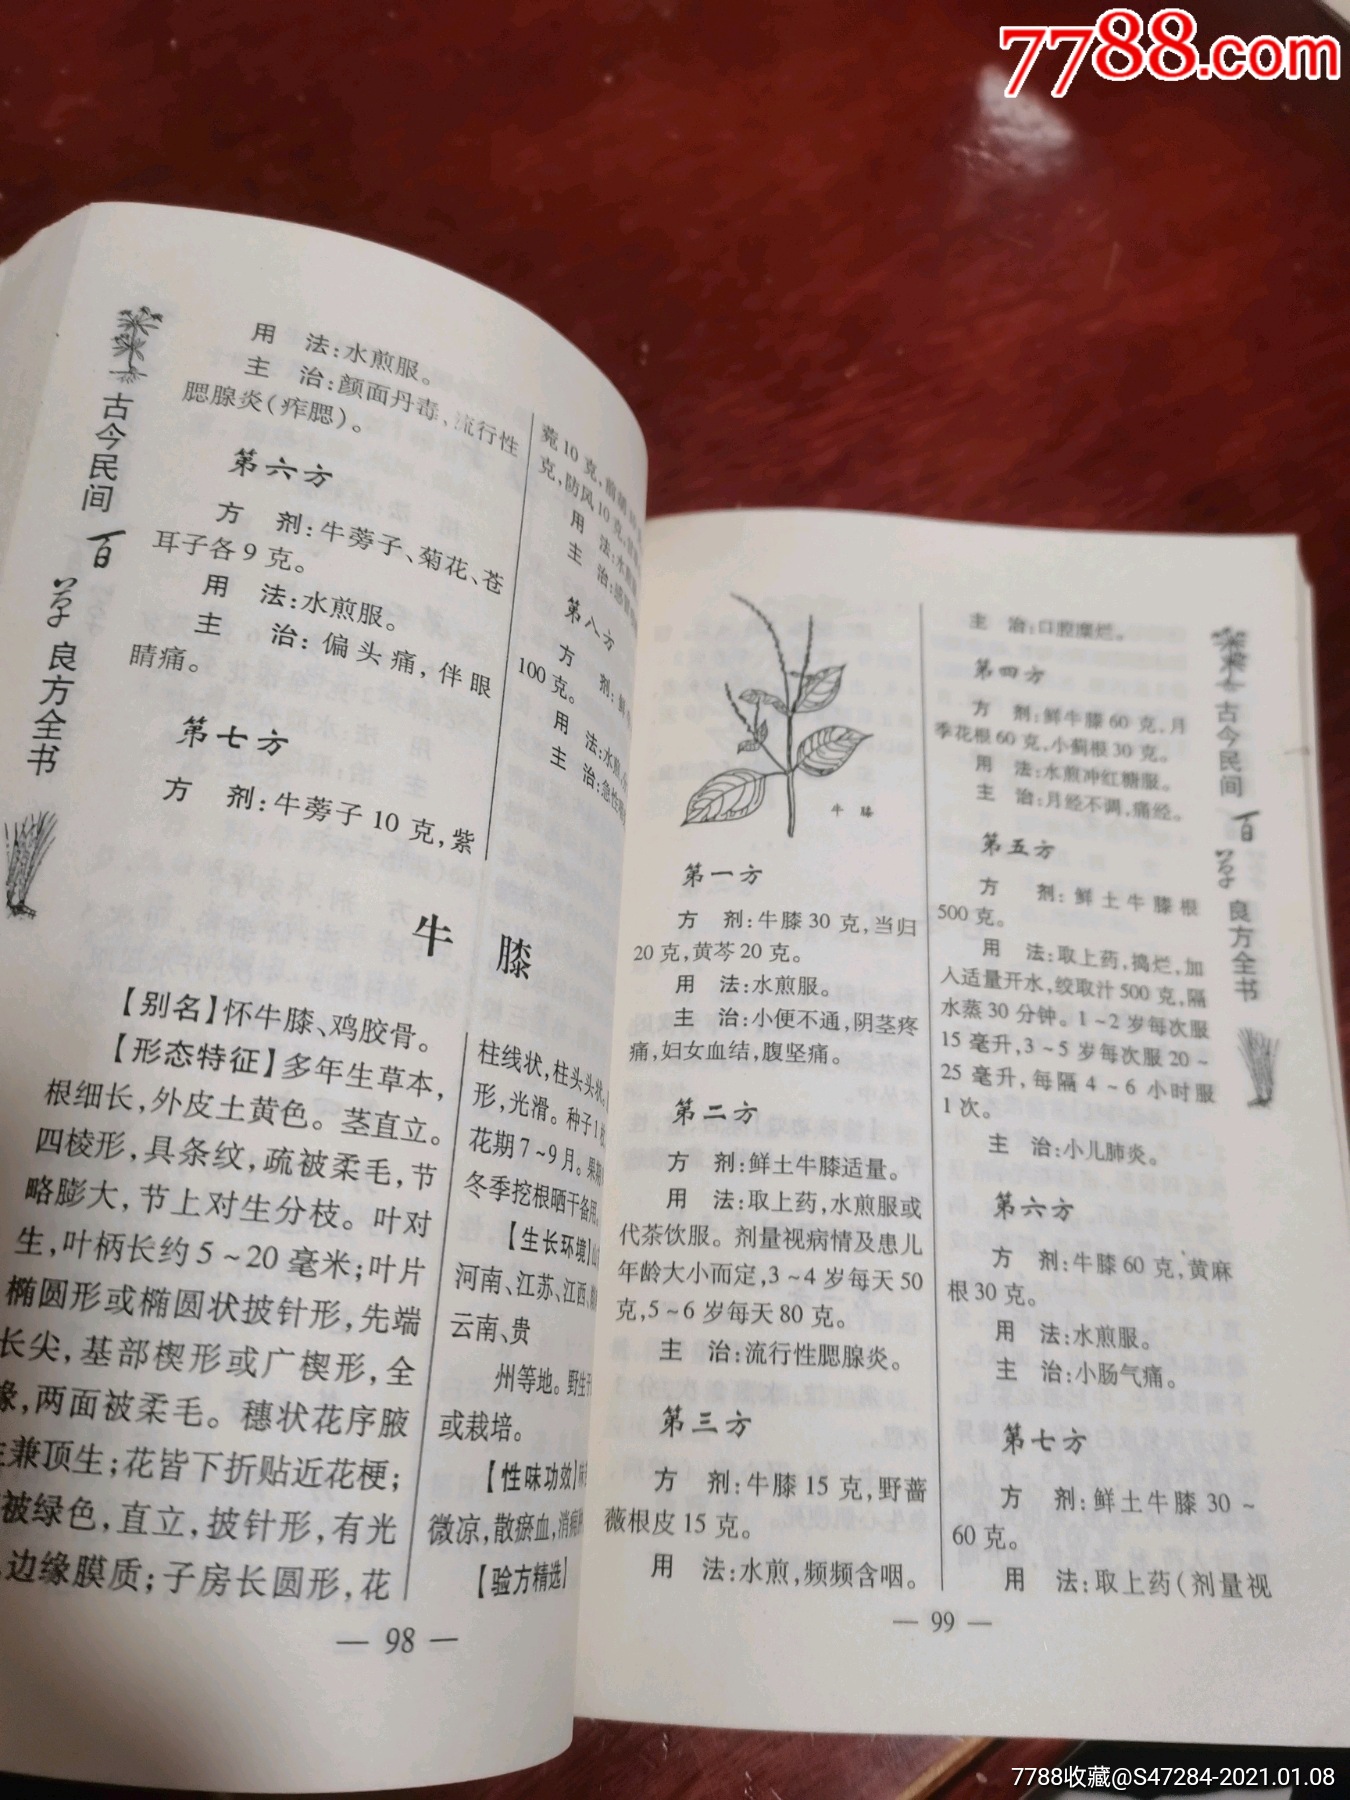 7788.com
古今民间百草良方全书
用 法:水煎服。
主 治:颜面丹毒、流行性
腮腺炎(痄腮)。
第六方
方 剂:牛蒡子、菊花、苍
耳子各9克。
用 法:水煎服。
主 治:偏头痛,伴眼
睛痛。
第七方
方 剂:牛蒡子10克,紫
菀10克,前胡
克,防风10克,
用 法:水煎
主 治:感冒
第八方
方 剂:鲜
100克。
用 法:水煎
主 治:急性
牛 膝
【别名】怀牛膝、鸡胶骨。
【形态特征】多年生草本,
根细长,外皮土黄色。茎直立。
四棱形,具条纹,疏被柔毛,节
略膨大,节上对生分枝。叶对
生,叶柄长约5~20毫米;叶片
椭圆形或椭圆状披针形,先端
长尖,基部楔形或广楔形,全
缘,两面被柔毛。穗状花序腋
生兼顶生;花皆下折贴近花梗;
被绿色,直立,披针形,有光
边缘膜质;子房长圆形,花
柱线状,柱头头状。
形,光滑。种子1
花期7~9月。果期
冬季挖根晒干备用。
【生长环境】
河南、江苏、江西、
云南、贵
州等地。野生于
或栽培。
【性味功效】
微凉,散瘀血,消
【验方精选】
— 98 —
牛 膝
第一方
方 剂:牛膝30克,当归
20克,黄芩20克。
用 法:水煎服。
主 治:小便不通,阴茎疼
痛,妇女血结,腹坚痛。
第二方
方 剂:鲜土牛膝适量。
用 法:取上药,水煎服或
代茶饮服。剂量视病情及患儿
年龄大小而定,3~4岁每天50
克,5~6岁每天80克。
主 治:流行性腮腺炎。
第三方
方 剂:牛膝15克,野蔷
薇根皮15克。
用 法:水煎,频频含咽。
主 治:口腔糜烂。
第四方
方 剂:鲜牛膝60克,月
季花根60克,小蓟根30克。
用 法:水煎冲红糖服。
主 治:月经不调,痛经。
第五方
方 剂:鲜土牛膝根
500克。
用 法:取上药,捣烂,加
人适量开水,绞取汁500克,隔
水蒸30分钟。1~2岁每次服
15毫升,3~5岁每次服20~
25毫升,每隔4~6小时服
1次。
主 治:小儿肺炎。
第六方
方 剂:牛膝60克,黄麻
根30克。
用 法:水煎服。
主 治:小肠气痛。
第七方
方 剂:鲜土牛膝30~
60克。
用 法:取上药(剂量视
— 99 —
古今民间百草良方全书
7788收藏@S47284-2021.01.08